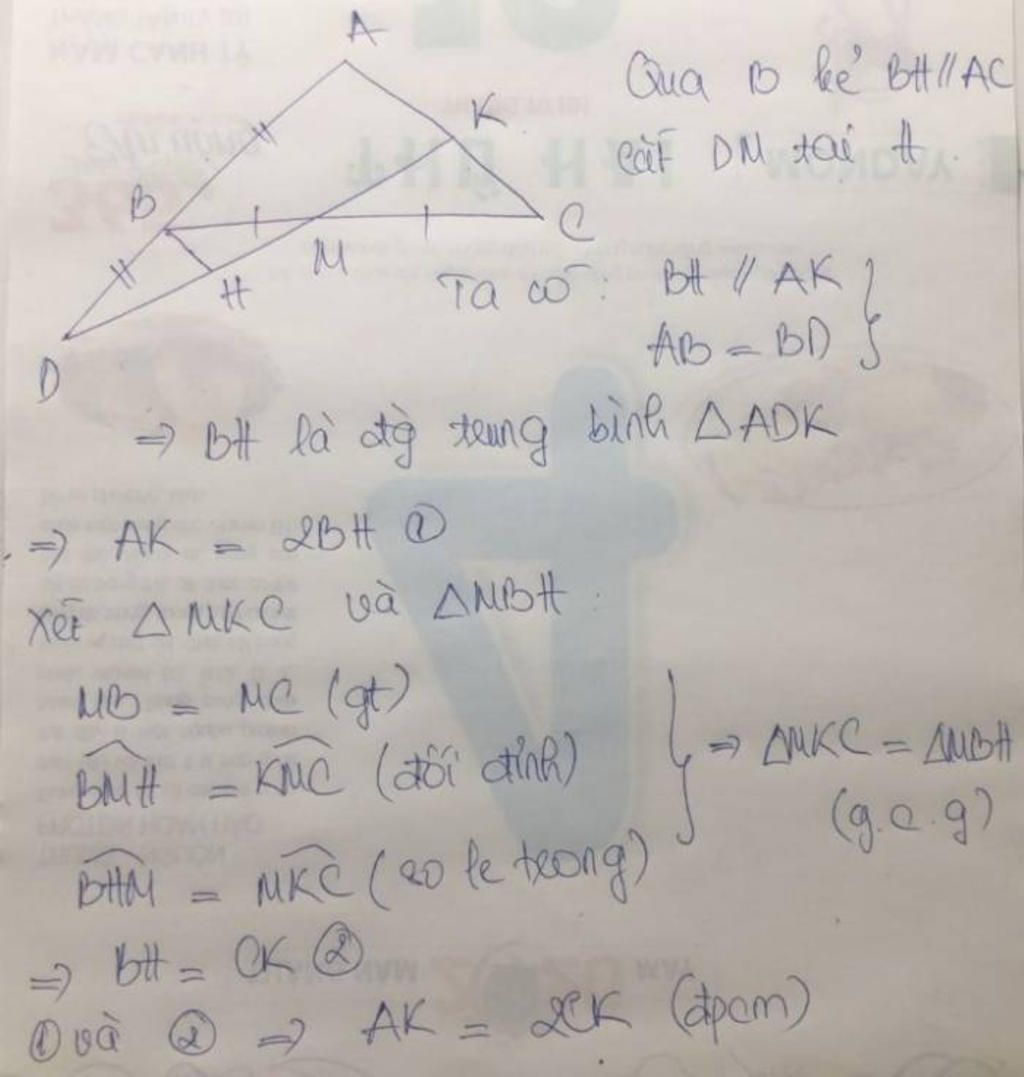 A
K
B
C
M
H
D
Qua B kẻ BH // AC
cắt DM tại H.
Ta có: BH // AK
AB = BD
=> BH là đtg trung bình △ADK
=> AK = 2BH ①
Xét △MKC và △MBH
MB = MC (gt)
BMH = KMC (đối đỉnh)
BHM = MKC (so le trong)
=> △MKC = △MBH
(g.c.g)
=> BH = CK ②
① và ② => AK = 2CK (đpcm)